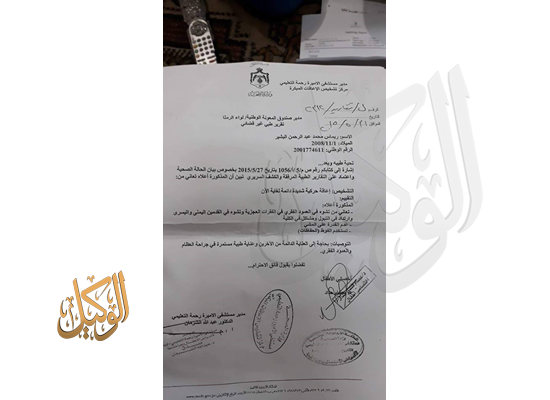 مدير مستشفى الاميرة رحمة التعليمي
مركز تشخيص الإعاقات المبكرة
الرقم
التاريخ
الموافق
مدير صندوق المعونة الوطنية/ لواء الرمثا
تقرير طبي غير قضائي
الاسم: ريماس محمد عبد الرحمن البشير
الميلاد: 2008/11/1
الرقم الوطني: 2001774611
تحية طيبة وبعد...
إشارة إلى كتابكم رقم م/1056/5 بتاريخ 2015/5/27 بخصوص بيان الحالة الصحية
واعتماد على التقارير الطبية المرفقة والكشف السريري تبين أن المذكورة أعلاه تعاني من:
التشخيص: إعاقة حركية شديدة دائمة لغاية الآن
التقييم:
المذكورة أعلاه:
- تعاني من تشوه في العمود الفقري في الفقرات العجزية وتشوه في القدمين اليمنى واليسرى
وارتداد في التبول ومشاكل في الكلية
- عدم القدرة على المشي
- تستخدم الفوط (الحفاظات)
التوصيات: بحاجة إلى العناية الدائمة من الآخرين وعناية طبية مستمرة في جراحة العظام
والعمود الفقري.
تفضلوا بقبول فائق الاحترام...
الأطفال
مدير مستشفى الاميرة رحمة التعليمي
الدكتور عبد الله الشرمان
الوكيل
الوكيل